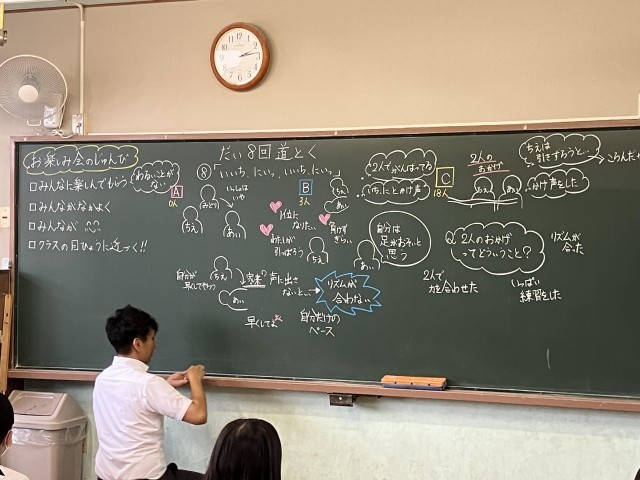 お楽しみ会のじゅんび
□みんなに楽しんでもらう
□みんながなかよく
□みんなが
□クラスの目ひょうに近づく!!
だい8回道とく
⑧「いいち、にい、いいち、にい。」
わるいことがない
A
0人
みどり
いっしょはいや
あい
B
3人
ちえ
あい
1位になりたい。
負けずぎらい。
わたしが引っぱろう
ちえ
あい
自分は足がおそいと思う
2人でがんばってる
いち、にとかけ声
C
18人
2人のおかげ
ちえ
あい
ちえは引きずろうと…
かけ声をした
Q.2人のおかげってどういうこと?
リズムが合った
2人で力を合わせた
いっぱい練習をした
自分が早くてやつ
ちえ
あい
声に出さないと…
リズムが合わない
早くしてよ
自分だけのペース